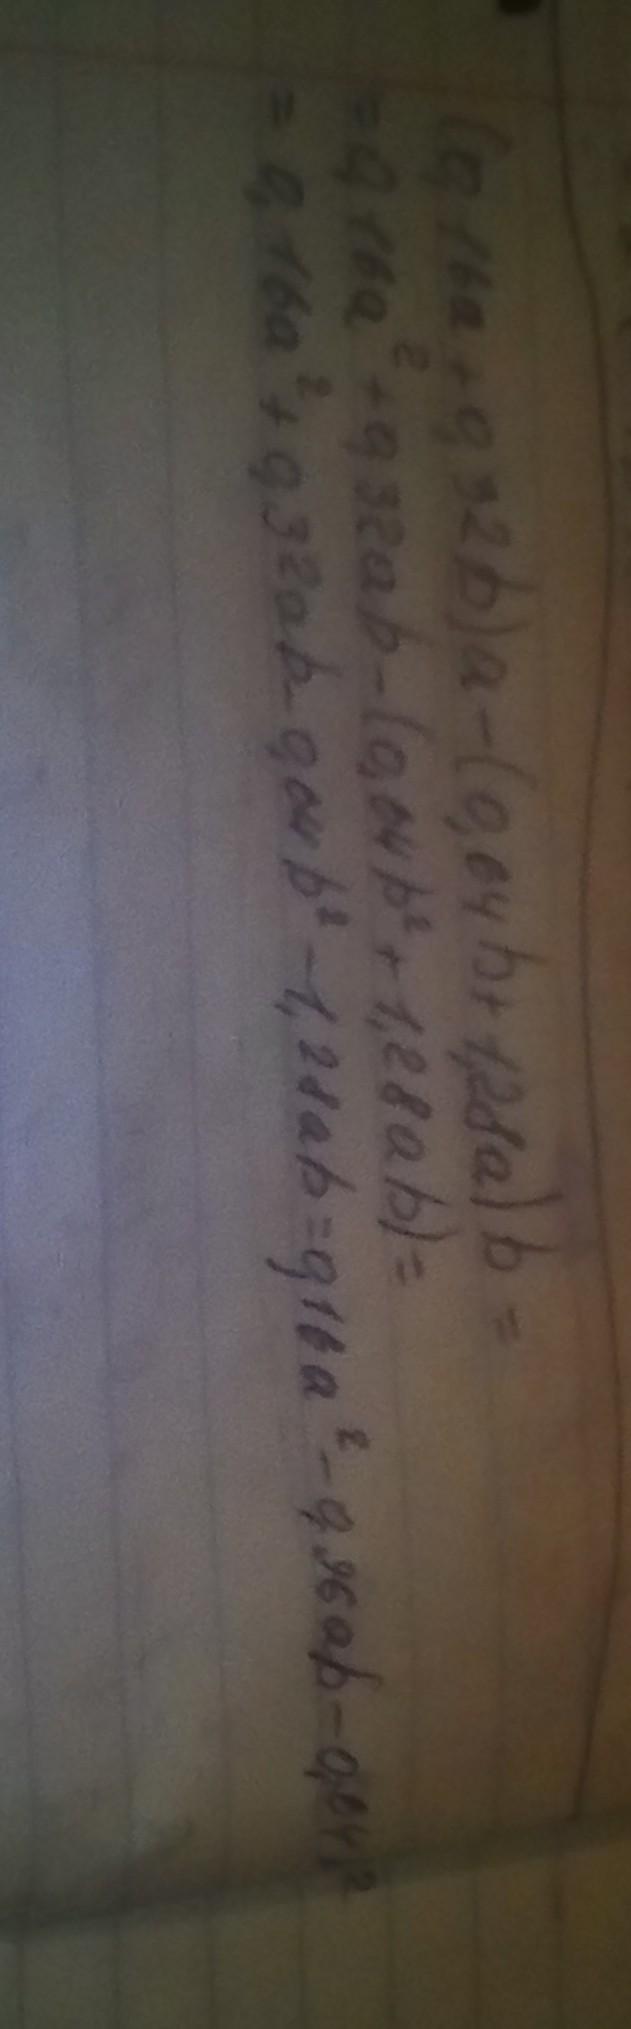 (0,16a+0,32b)a-(0,04b+1,28a)b=
=0,16a²+0,32ab-(0,04b²+1,28ab)=
=0,16a²+0,32ab-0,04b²-1,28ab=0,16a²-0,96ab-0,04b²